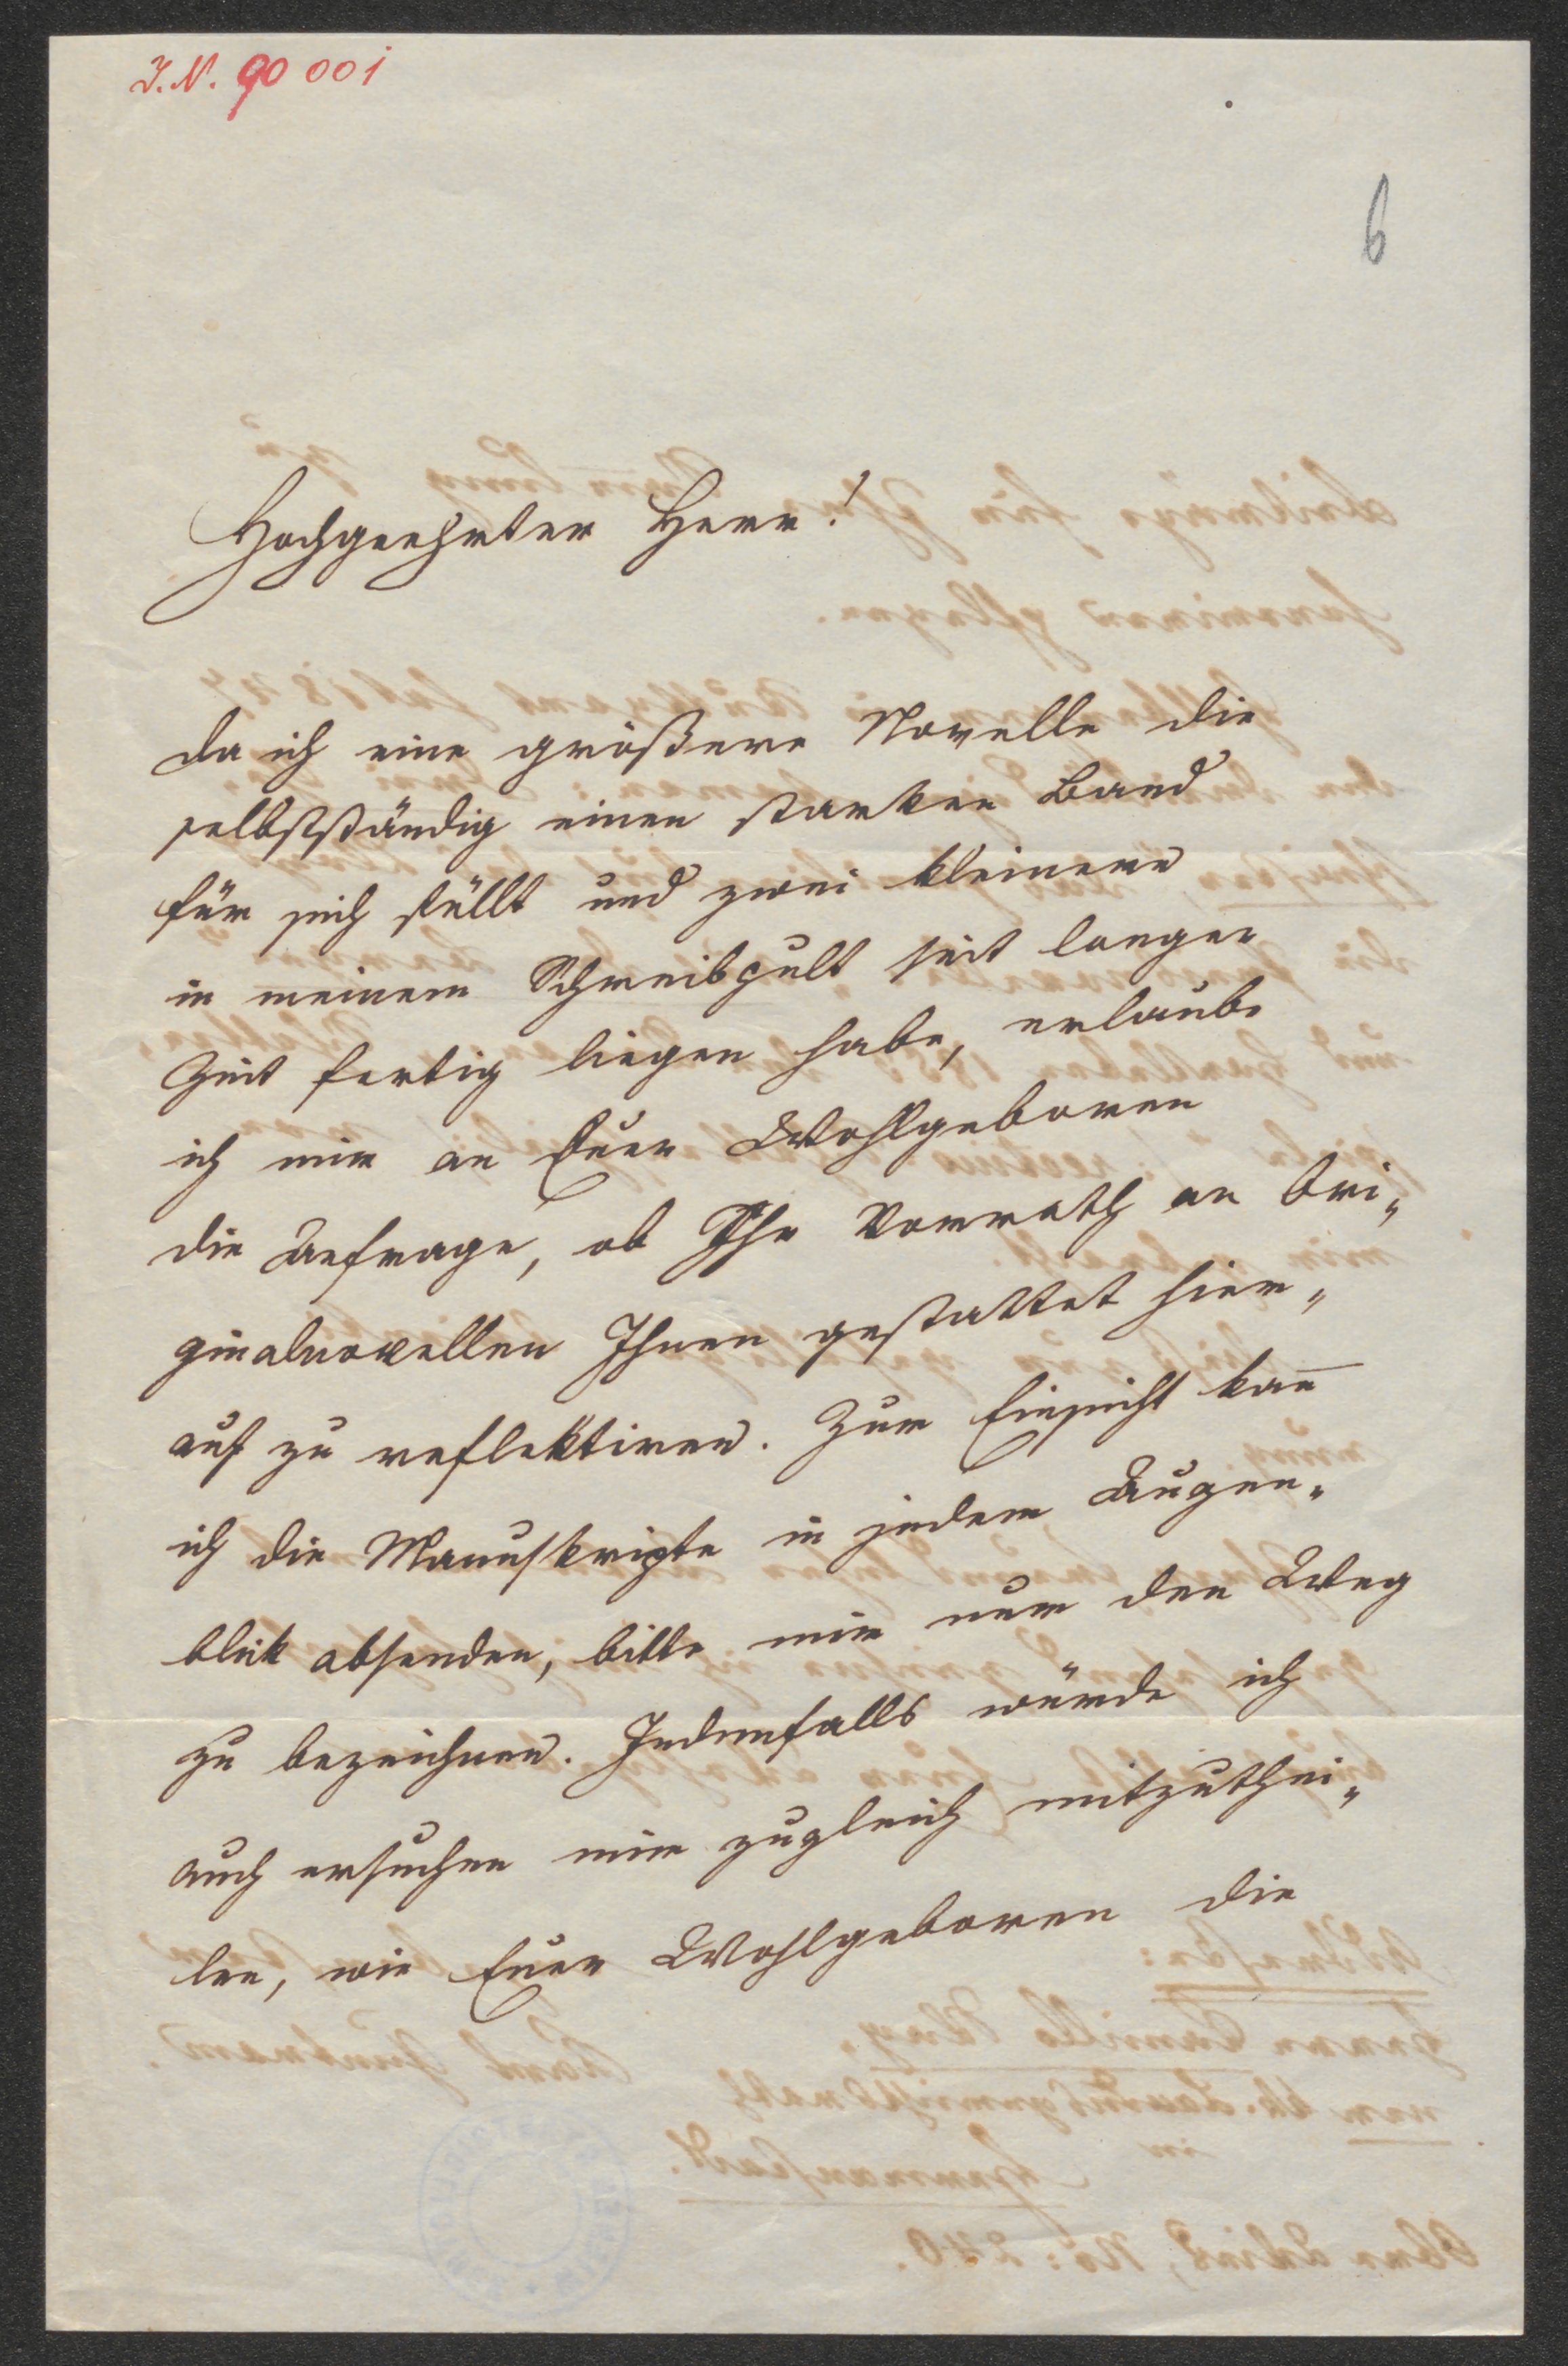 I. N. 90 001
6
Hochgeehrter Herr!
da ich eine größere Novelle die
selbstständig einen starken Band
für sich füllt und zwei kleinere
in meinem Schreibpult seit langer
Zeit fertig liegen habe, erlaube
ich mir an Euer Wohlgeboren
die Anfrage, ob Ihr Vorrath an Ori„
ginalnovellen Ihnen gestattet hier„
auf zu reflektiren. Zur Einsicht kan̄
ich die Manuskripte in jedem Augen„
blik absenden, bitte mir nur den Weg
zu bezeichnen. Jedenfalls würde ich
auch ersuchen mir zugleich mitzuthei„
len, wie Euer Wohlgeboren die